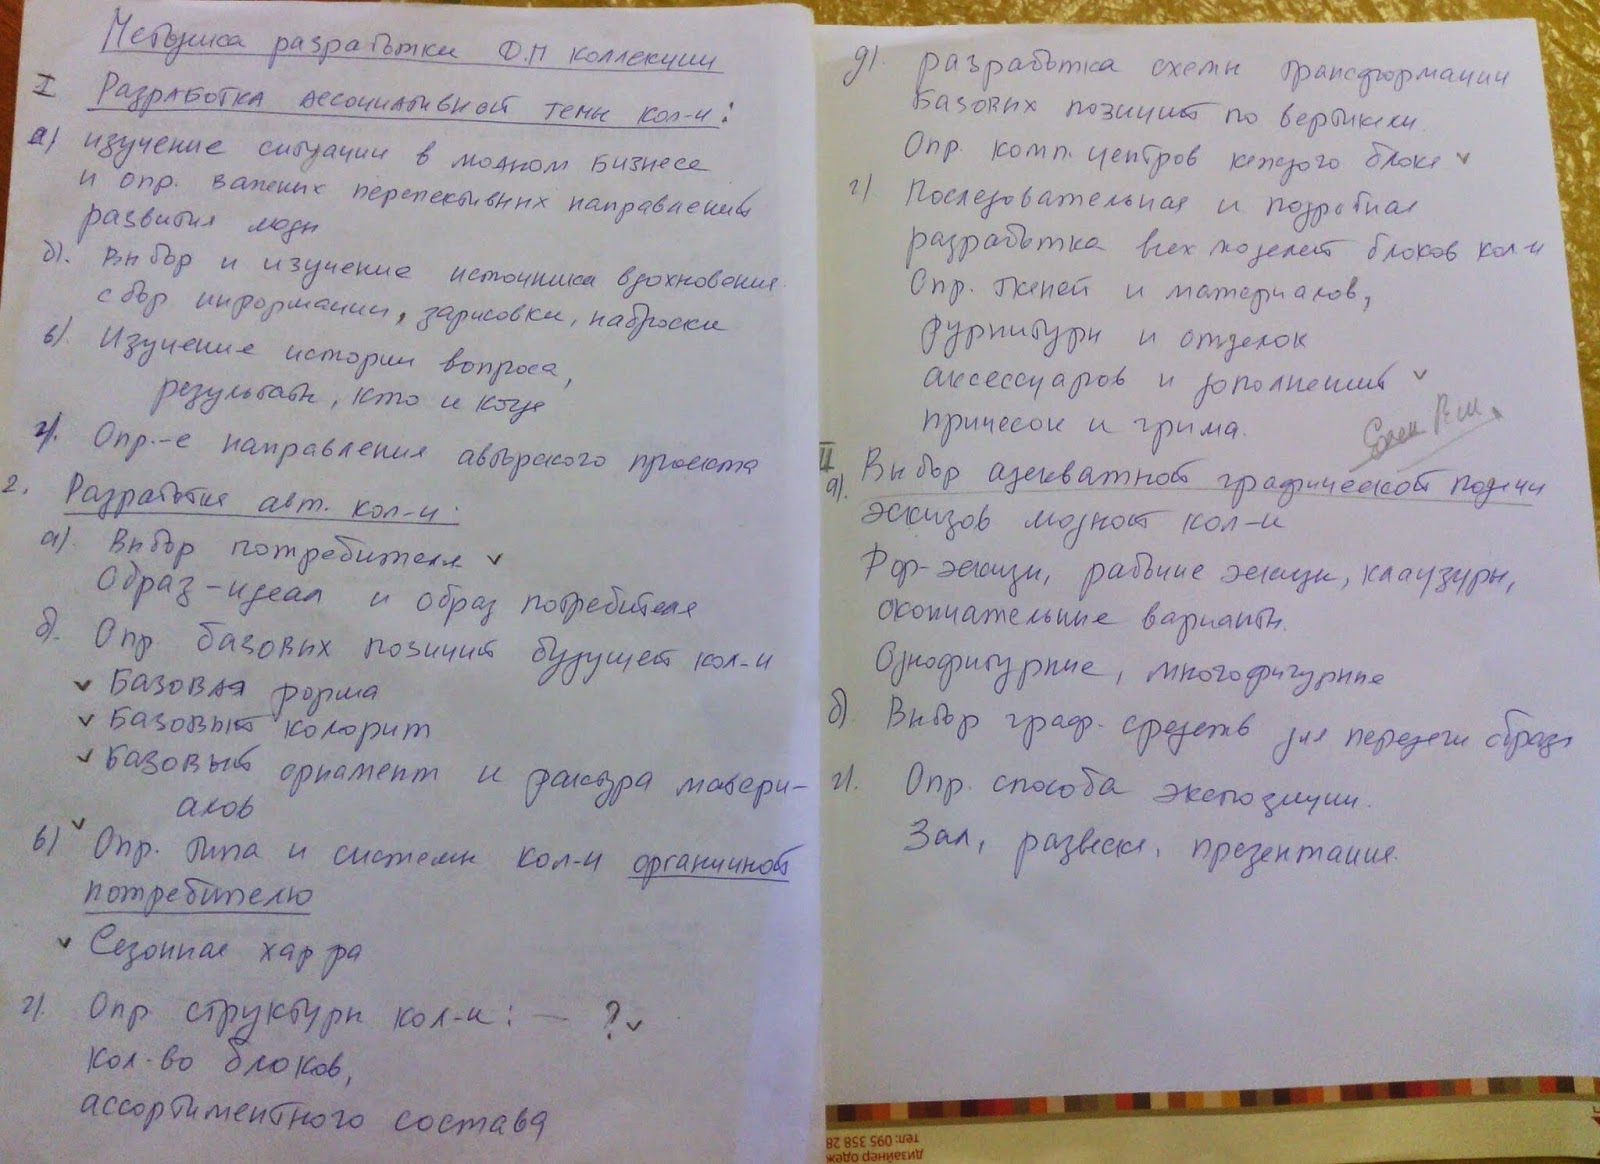 Методика разработки Д.П коллекции
I Разработка ассоциативной темы кол-и:
а) изучение ситуации в модном бизнесе
и опр. важных перспективных направлений
развития моды
б). Выбор и изучение источника вдохновения
сбор информации, зарисовки, наброски
в). Изучение истории вопроса,
результаты, кто и когда
г). Опр.-е направления авторского проекта
2. Разработка авт. кол-и:
а). Выбор потребителя ✓
Образ-идеал и образ потребителя
б). Опр. базовых позиций будущей кол-и
✓ Базовая форма
✓ Базовый колорит
✓ Базовый орнамент и фактура матери-
алов
в) ✓ Опр. типа и системы кол-и органичной
потребителю
✓ Сезонная хар-ра
г). Опр структуры кол-и: — ? ✓
кол-во блоков,
ассортиментного состава
д). разработка схемы трансформации
базовых позиций по вертикали.
Опр. комп. центров каждого блока ✓
г) Последовательная и подробная
разработка всех моделей блоков кол-и
Опр. тканей и материалов,
фурнитуры и отделок
аксессуаров и дополнений ✓
причесок и грима.
II
а). Выбор адекватной графической подачи
эскизов модной кол-и
Фор-эскизы, рабочие эскизы, клаузуры,
окончательные варианты.
Однофигурные, многофигурные
б) Выбор граф. средств для передачи образа
г). Опр. способа экспозиции.
Зал, развеска, презентация.
дизайнер одеж
тел: 095 358 28